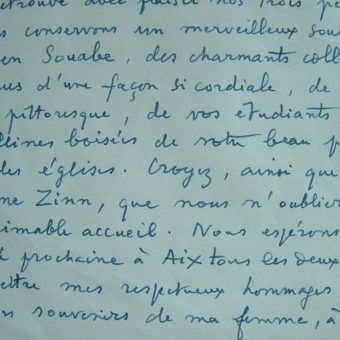 etrouvé avec plaisir nos trois pe
s conservons un merveilleux sou
en Souabe, des charmants coll
us d'une façon si cordiale, de
pittoresque, de vos etudiants
llines boisées de votre beau p
des églises. Croyez, ainsi que
me Zinn, que nous n'oublier
imable accueil. Nous espérons
prochaine à Aix tous les deux
ettre mes respectueux hommages
souvenirs de ma femme, à